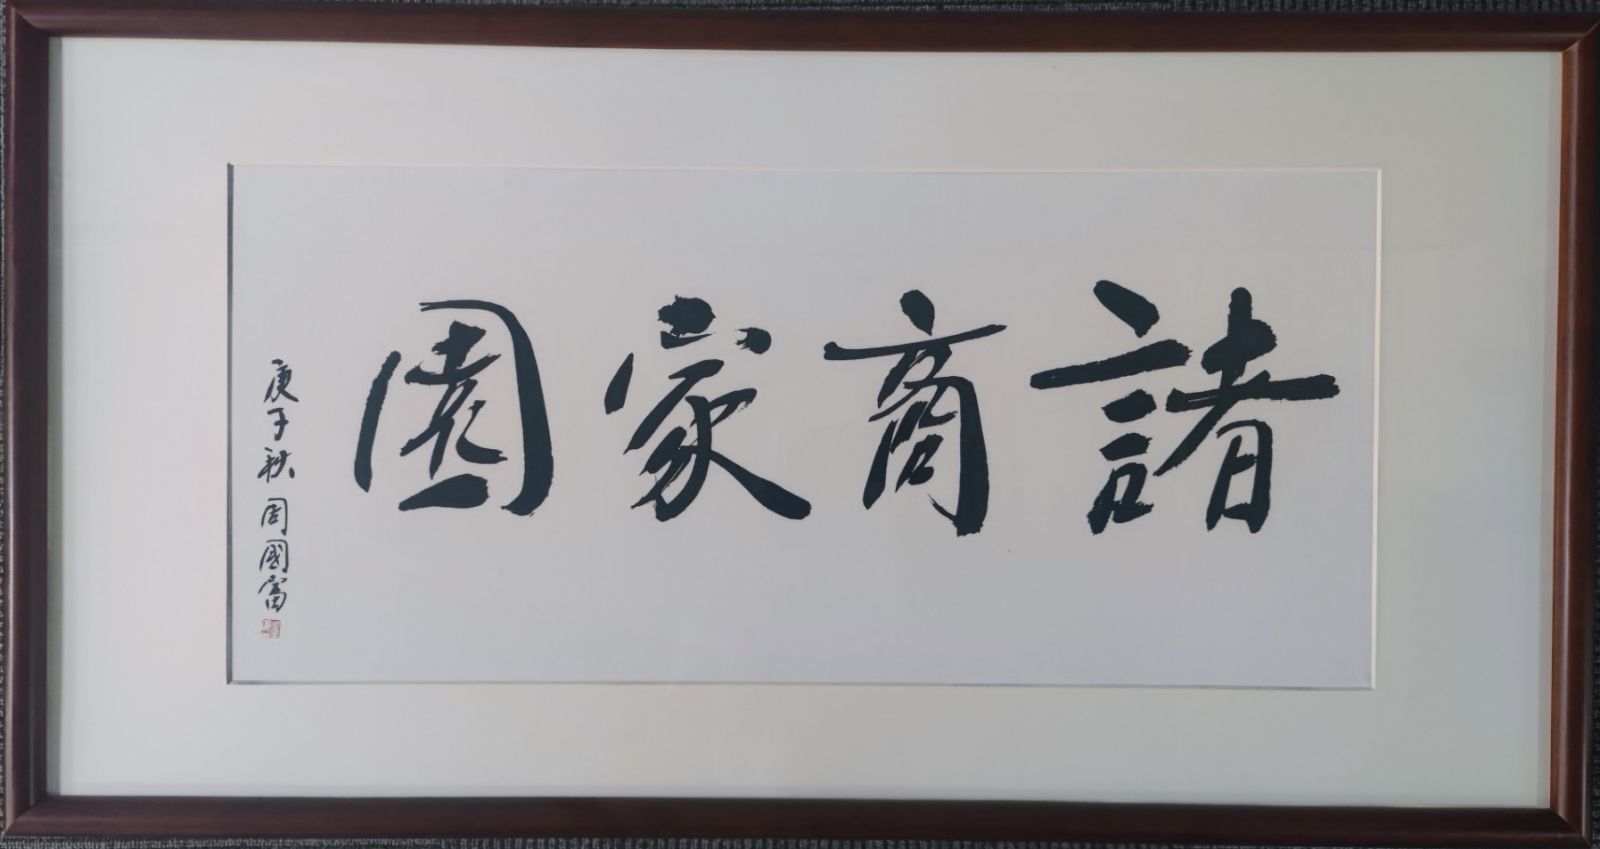 諸商家園
庚子秋 周國富